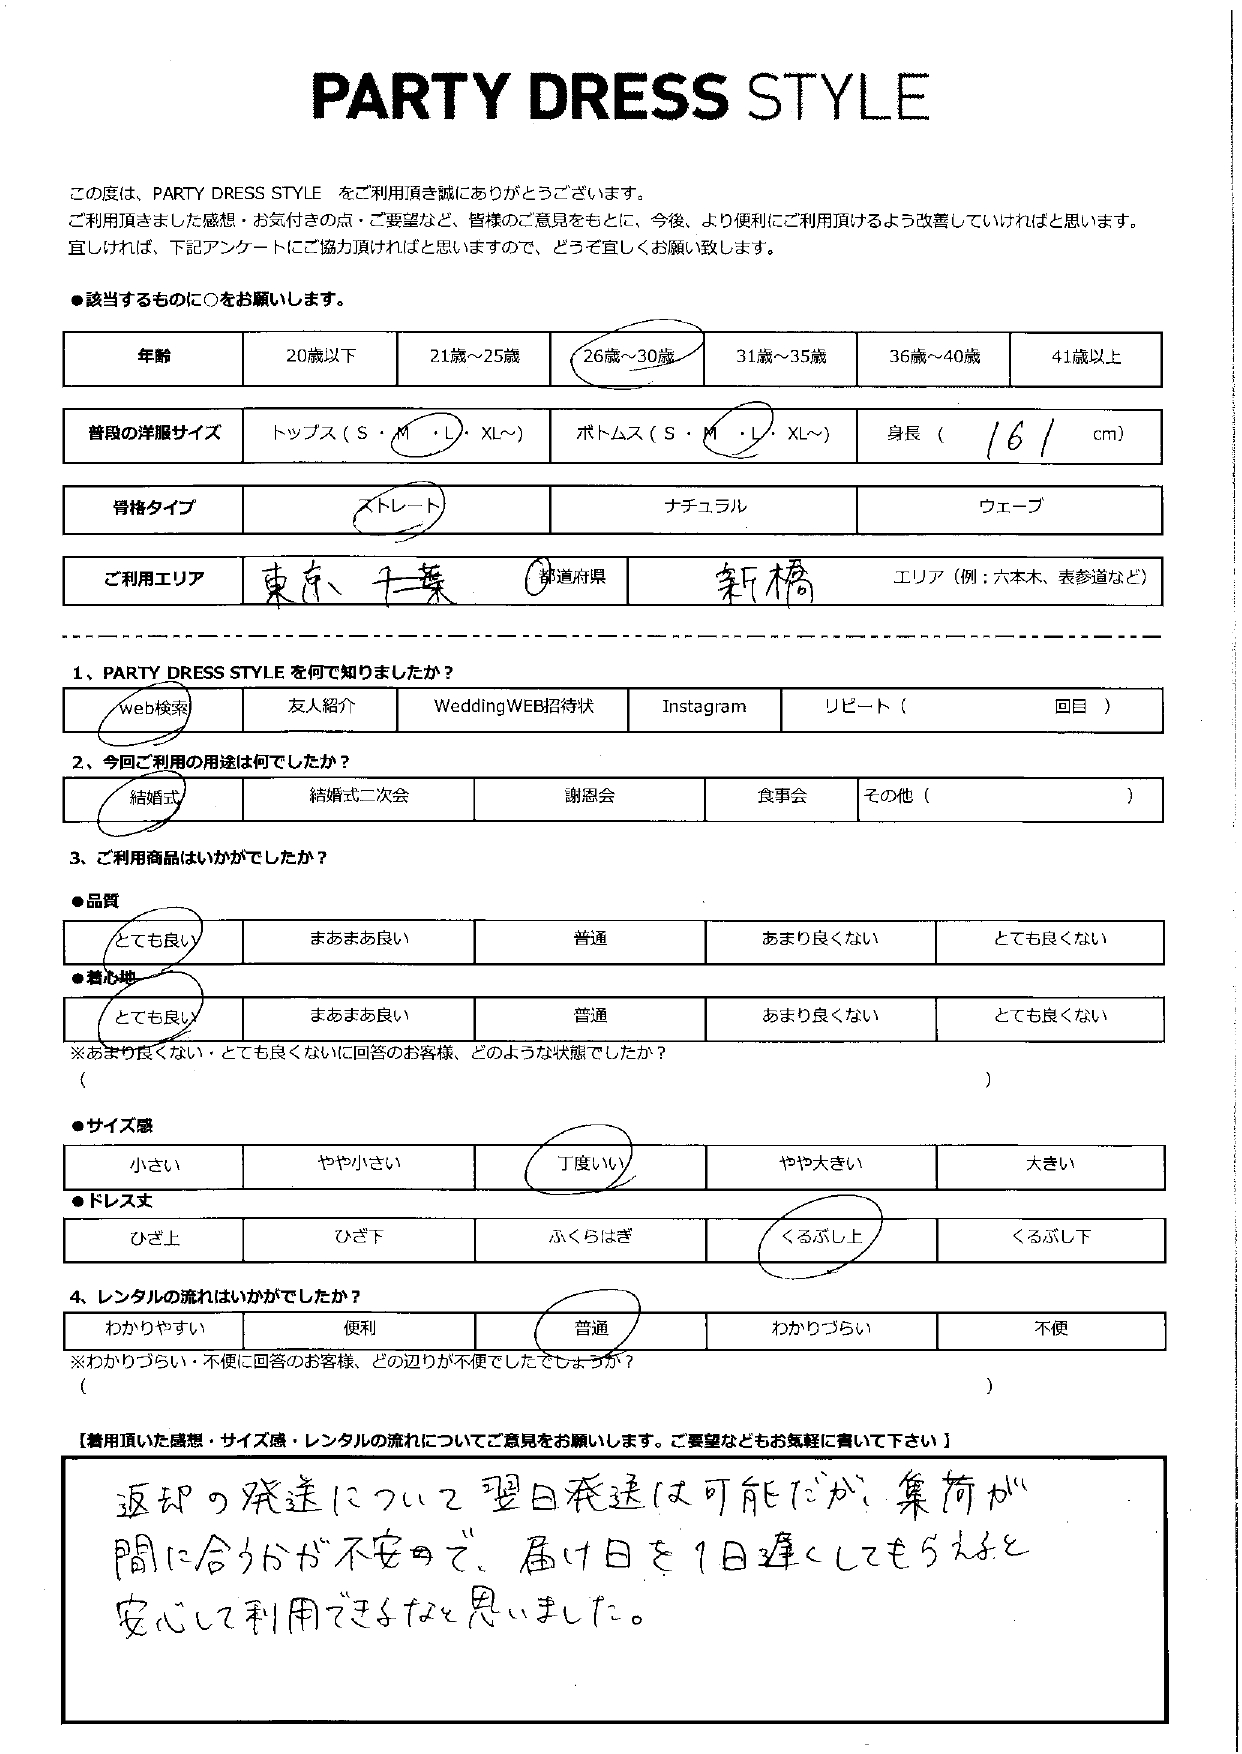 PARTY DRESS STYLE
この度は、PARTY DRESS STYLE をご利用頂き誠にありがとうございます。
ご利用頂きました感想・お気付きの点・ご要望など、皆様のご意見をもとに、今後、より便利にご利用頂けるよう改善していければと思います。
宜しければ、下記アンケートにご協力頂ければと思いますので、どうぞ宜しくお願い致します。
●該当するものに○をお願いします。
年齢 20歳以下 21歳～25歳 26歳～30歳 31歳～35歳 36歳～40歳 41歳以上
普段の洋服サイズ トップス ( S ・ M ・ L ・ XL～) ボトムス ( S ・ M ・ L ・ XL～) 身長 ( 161 cm)
骨格タイプ ストレート ナチュラル ウェーブ
ご利用エリア 東京、千葉 都道府県 新橋 エリア（例：六本木、表参道など）
1、PARTY DRESS STYLE を何で知りましたか？
web検索 友人紹介 WeddingWEB招待状 Instagram リピート（ 回目 ）
2、今回ご利用の用途は何でしたか？
結婚式 結婚式二次会 謝恩会 食事会 その他（ ）
3、ご利用商品はいかがでしたか？
●品質
とても良い まあまあ良い 普通 あまり良くない とても良くない
●着心地
とても良い まあまあ良い 普通 あまり良くない とても良くない
※あまり良くない・とても良くないに回答のお客様、どのような状態でしたか？
（ ）
●サイズ感
小さい やや小さい 丁度いい やや大きい 大きい
●ドレス丈
ひざ上 ひざ下 ふくらはぎ くるぶし上 くるぶし下
4、レンタルの流れはいかがでしたか？
わかりやすい 便利 普通 わかりづらい 不便
※わかりづらい・不便に回答のお客様、どの辺りが不便でしたでしょうか？
（ ）
【着用頂いた感想・サイズ感・レンタルの流れについてご意見をお願いします。ご要望などもお気軽に書いて下さい】
返却の発送について翌日発送は可能だが、集荷が
間に合うかが不安ので、届け日を1日遅くしてもらえると
安心して利用できるなと思いました。